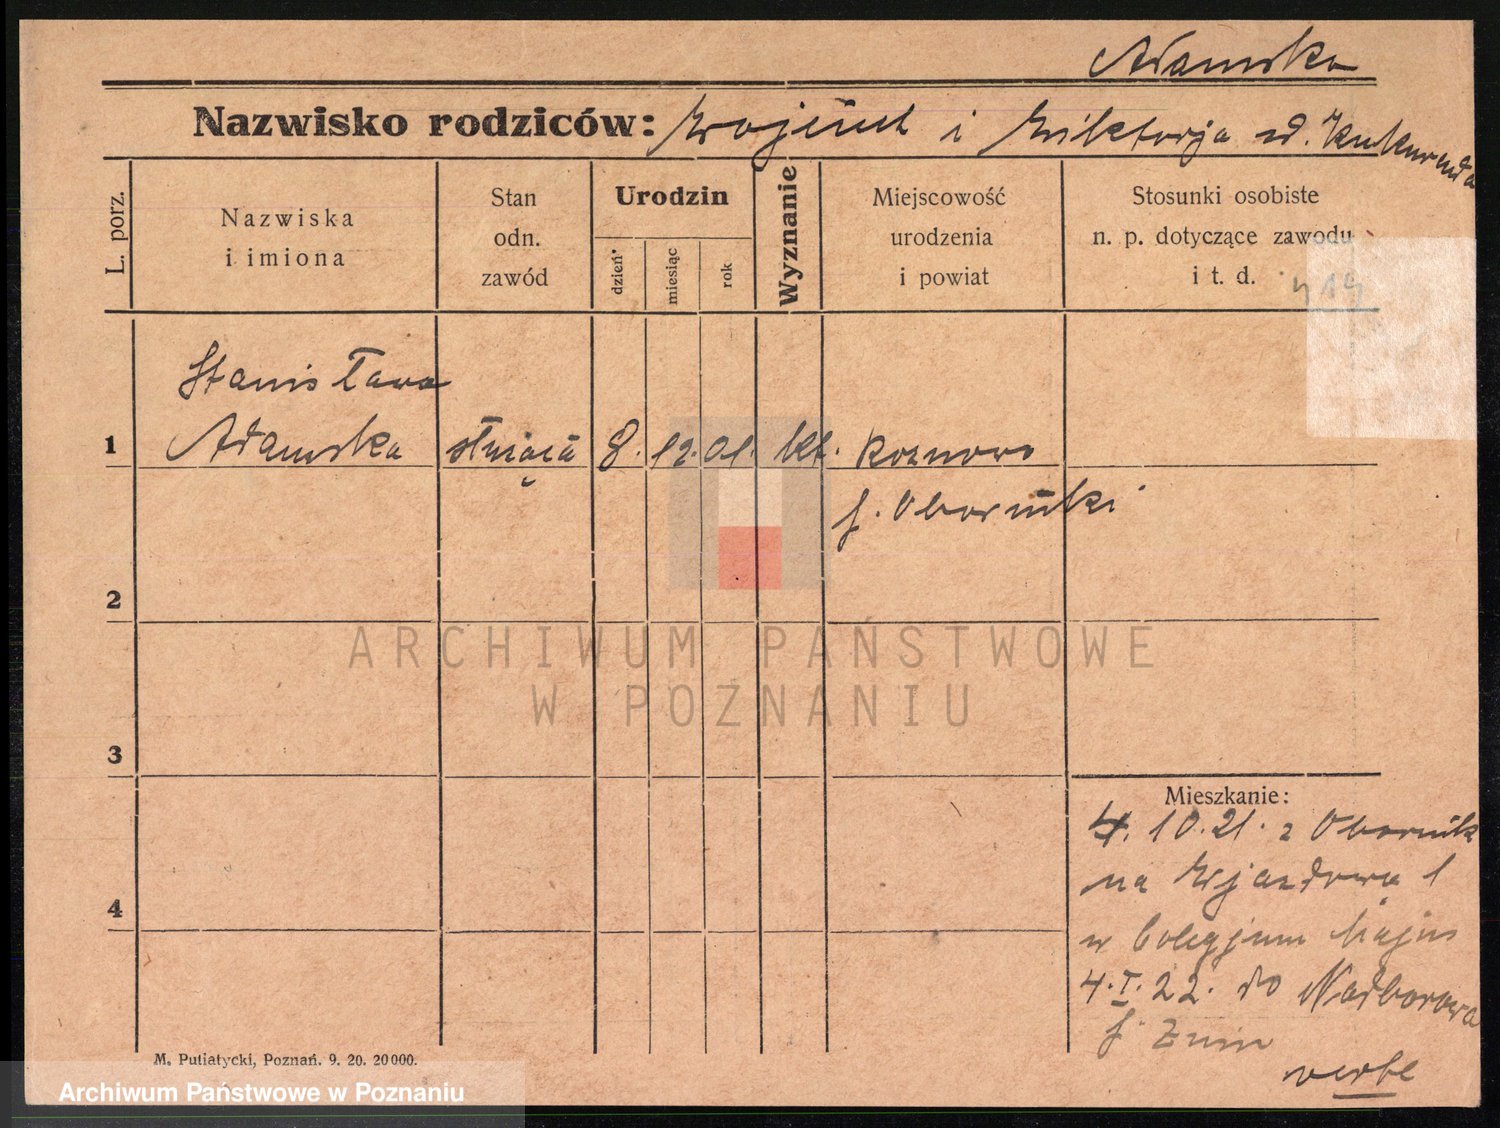 Adamska
Nazwisko rodziców: Wojciech i Wiktorja zd. Kukurenda
L. porz.
Nazwiska
i imiona
Stan
odn.
zawód
Urodzin
dzień
miesiąc
rok
Wyznanie
Miejscowość
urodzenia
i powiat
Stosunki osobiste
n. p. dotyczące zawodu
i t. d.
Stanisława
1 Adamska służąca 8. 12. 01. kt. Roznowo
p. Obornicki
2
3
4
Mieszkanie:
4. 10. 21. z Obornik
na Wjazdowa 1
w Colegjum Majus
4. I. 22. do Nadborowa
p. Znin
verte
M. Putiatycki, Poznań. 9. 20. 20000.
ARCHIWUM PAŃSTWOWE
W POZNANIU
Archiwum Państwowe w Poznaniu